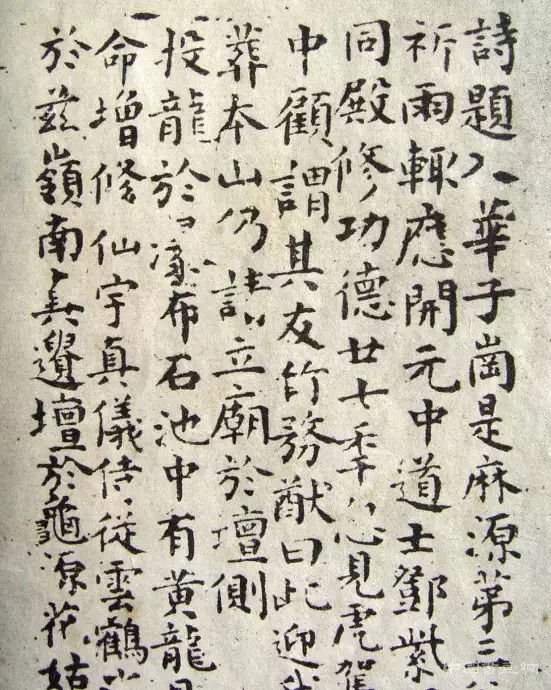 詩題入華子崗是麻源第三
祈雨輒應開元中道士鄧紫
同殿修功德廿七季忽見虎駕
中顧謂其友竹務猷曰此迎
葬本山仍請立廟於壇側
投龍於瀑布石池中有黃龍
命增修仙宇真儀侍從雲鶴
於茲嶺南真遺壇於龜源花姑